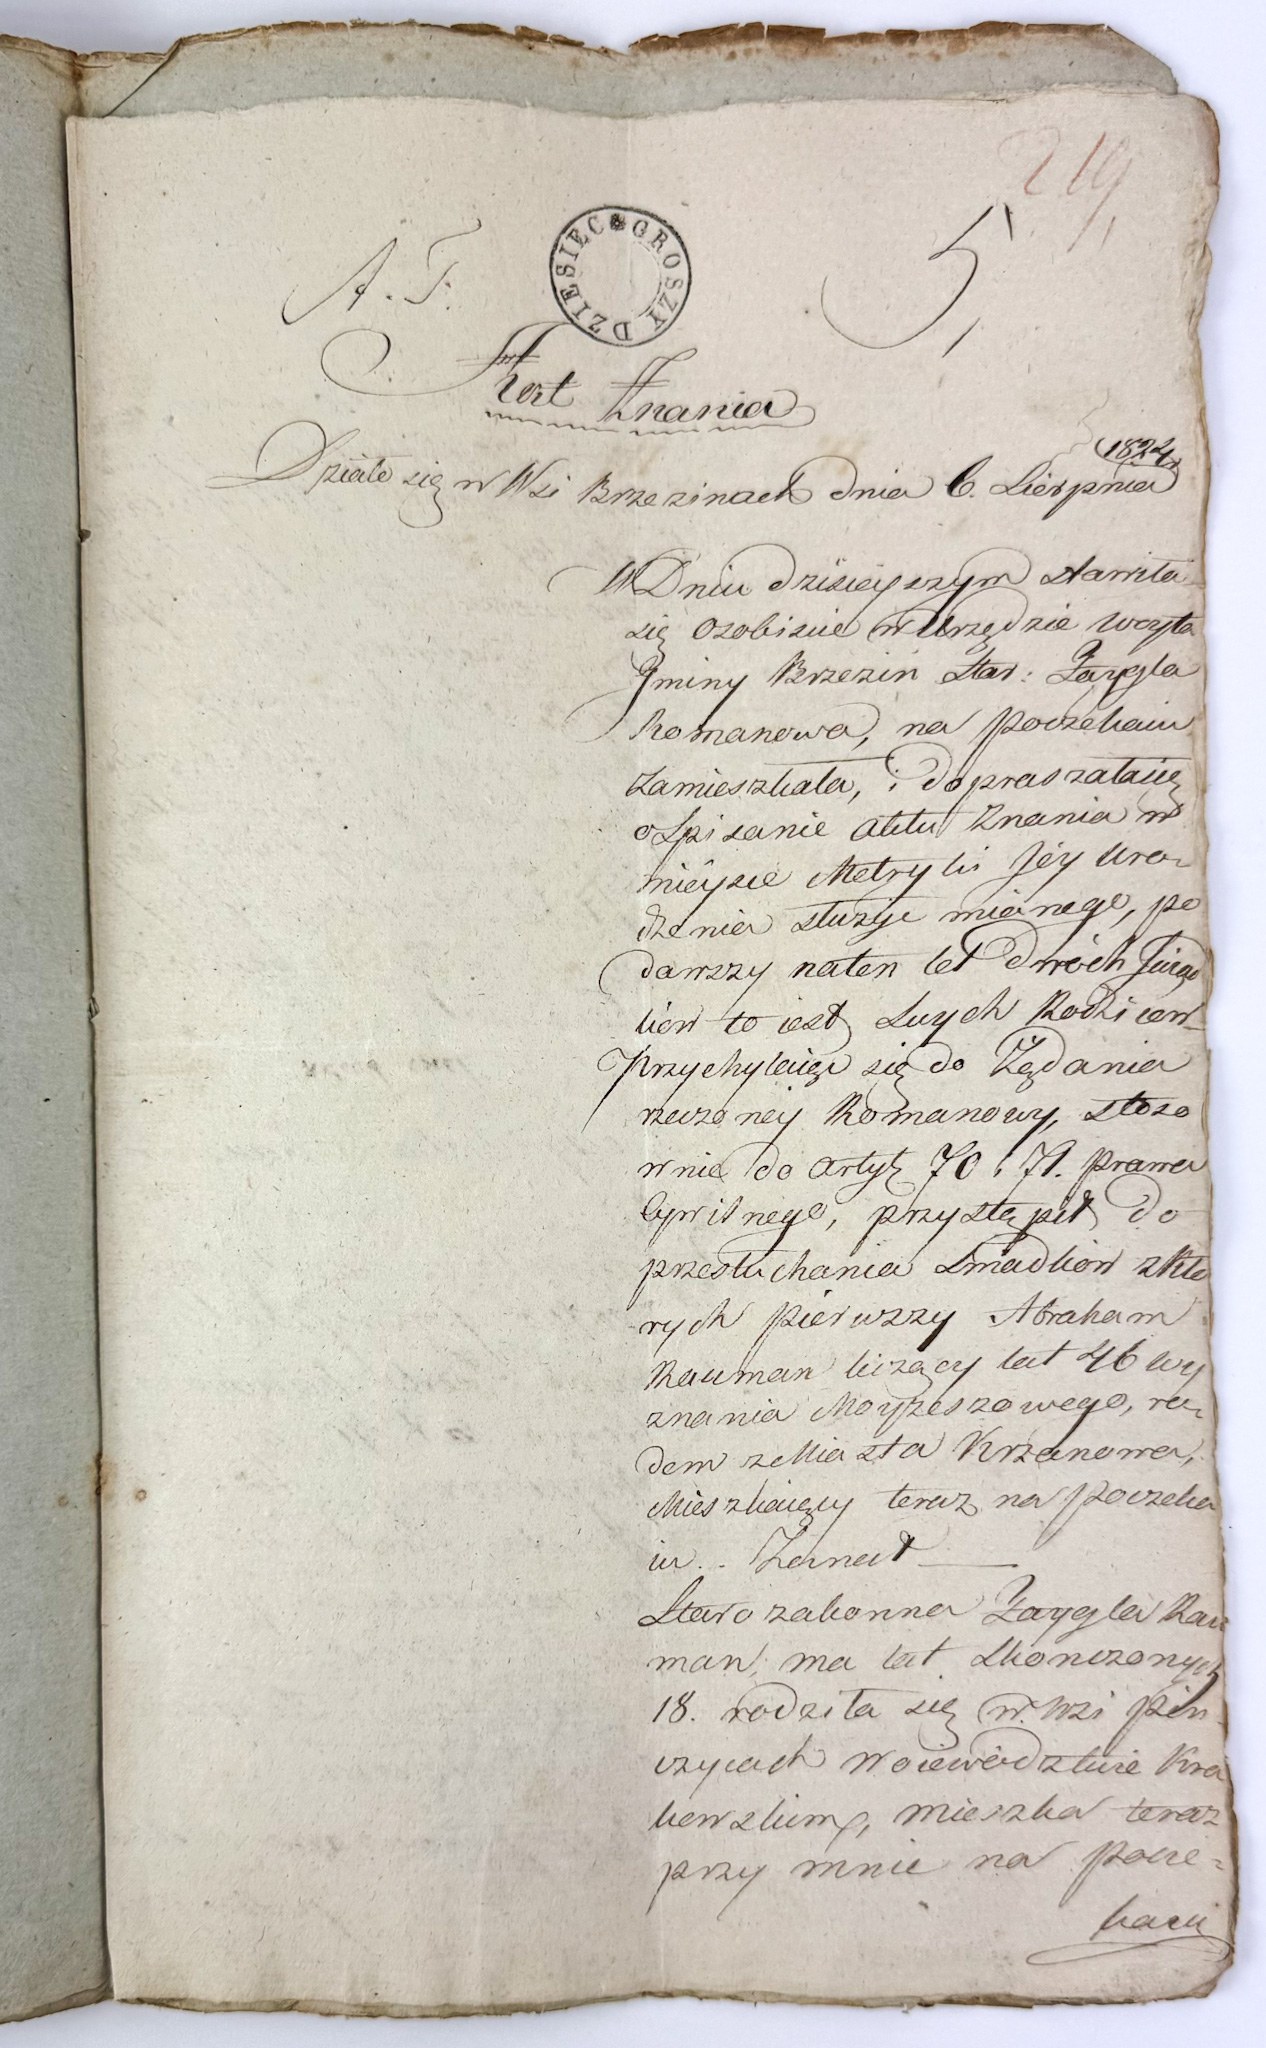 219
A. F.
DZIESIEC GROSZY
5,
Akt Znania
1824
Działo się w Wsi Brzezinach dnia 6. Sierpnia
W Dniu dzisieyszym stawiła
się osobiscie w Urzędzie woyta
Gminy Brzezin Star: Zaygla
Romanowa, na Poczekaiu
zamieszkała, i dopraszała się
o Spisanie Aktu Znania w
mieysce Metryki Jey Uro-
dzenia służyc mianego, po
dawszy na ten cel dwóch Swiad
ków to iest, Swych Rodziców
Przychylaiąc się do Żądania
rzeczoney Romanowy, stoso
wnie do artyk 70 i 71. prawa
Cywilnego, przystąpił do
przesłuchania Swiadków z któ
rych pierwszy Abraham
Rauman liczący lat 46 wy
znania Moyżeszowego, ro-
dem z Miasta Krzanowa,
Mieszkaiący teraz na Poczeka
iu.. Zeznał
Starozakonna Zaygla Rau
man, ma lat skończonych
18. rodziła się w Wsi Piń-
czycach Woiewodztwie Kra
kowskim, mieszka teraz
przy mnie na Pocze-
kaiu